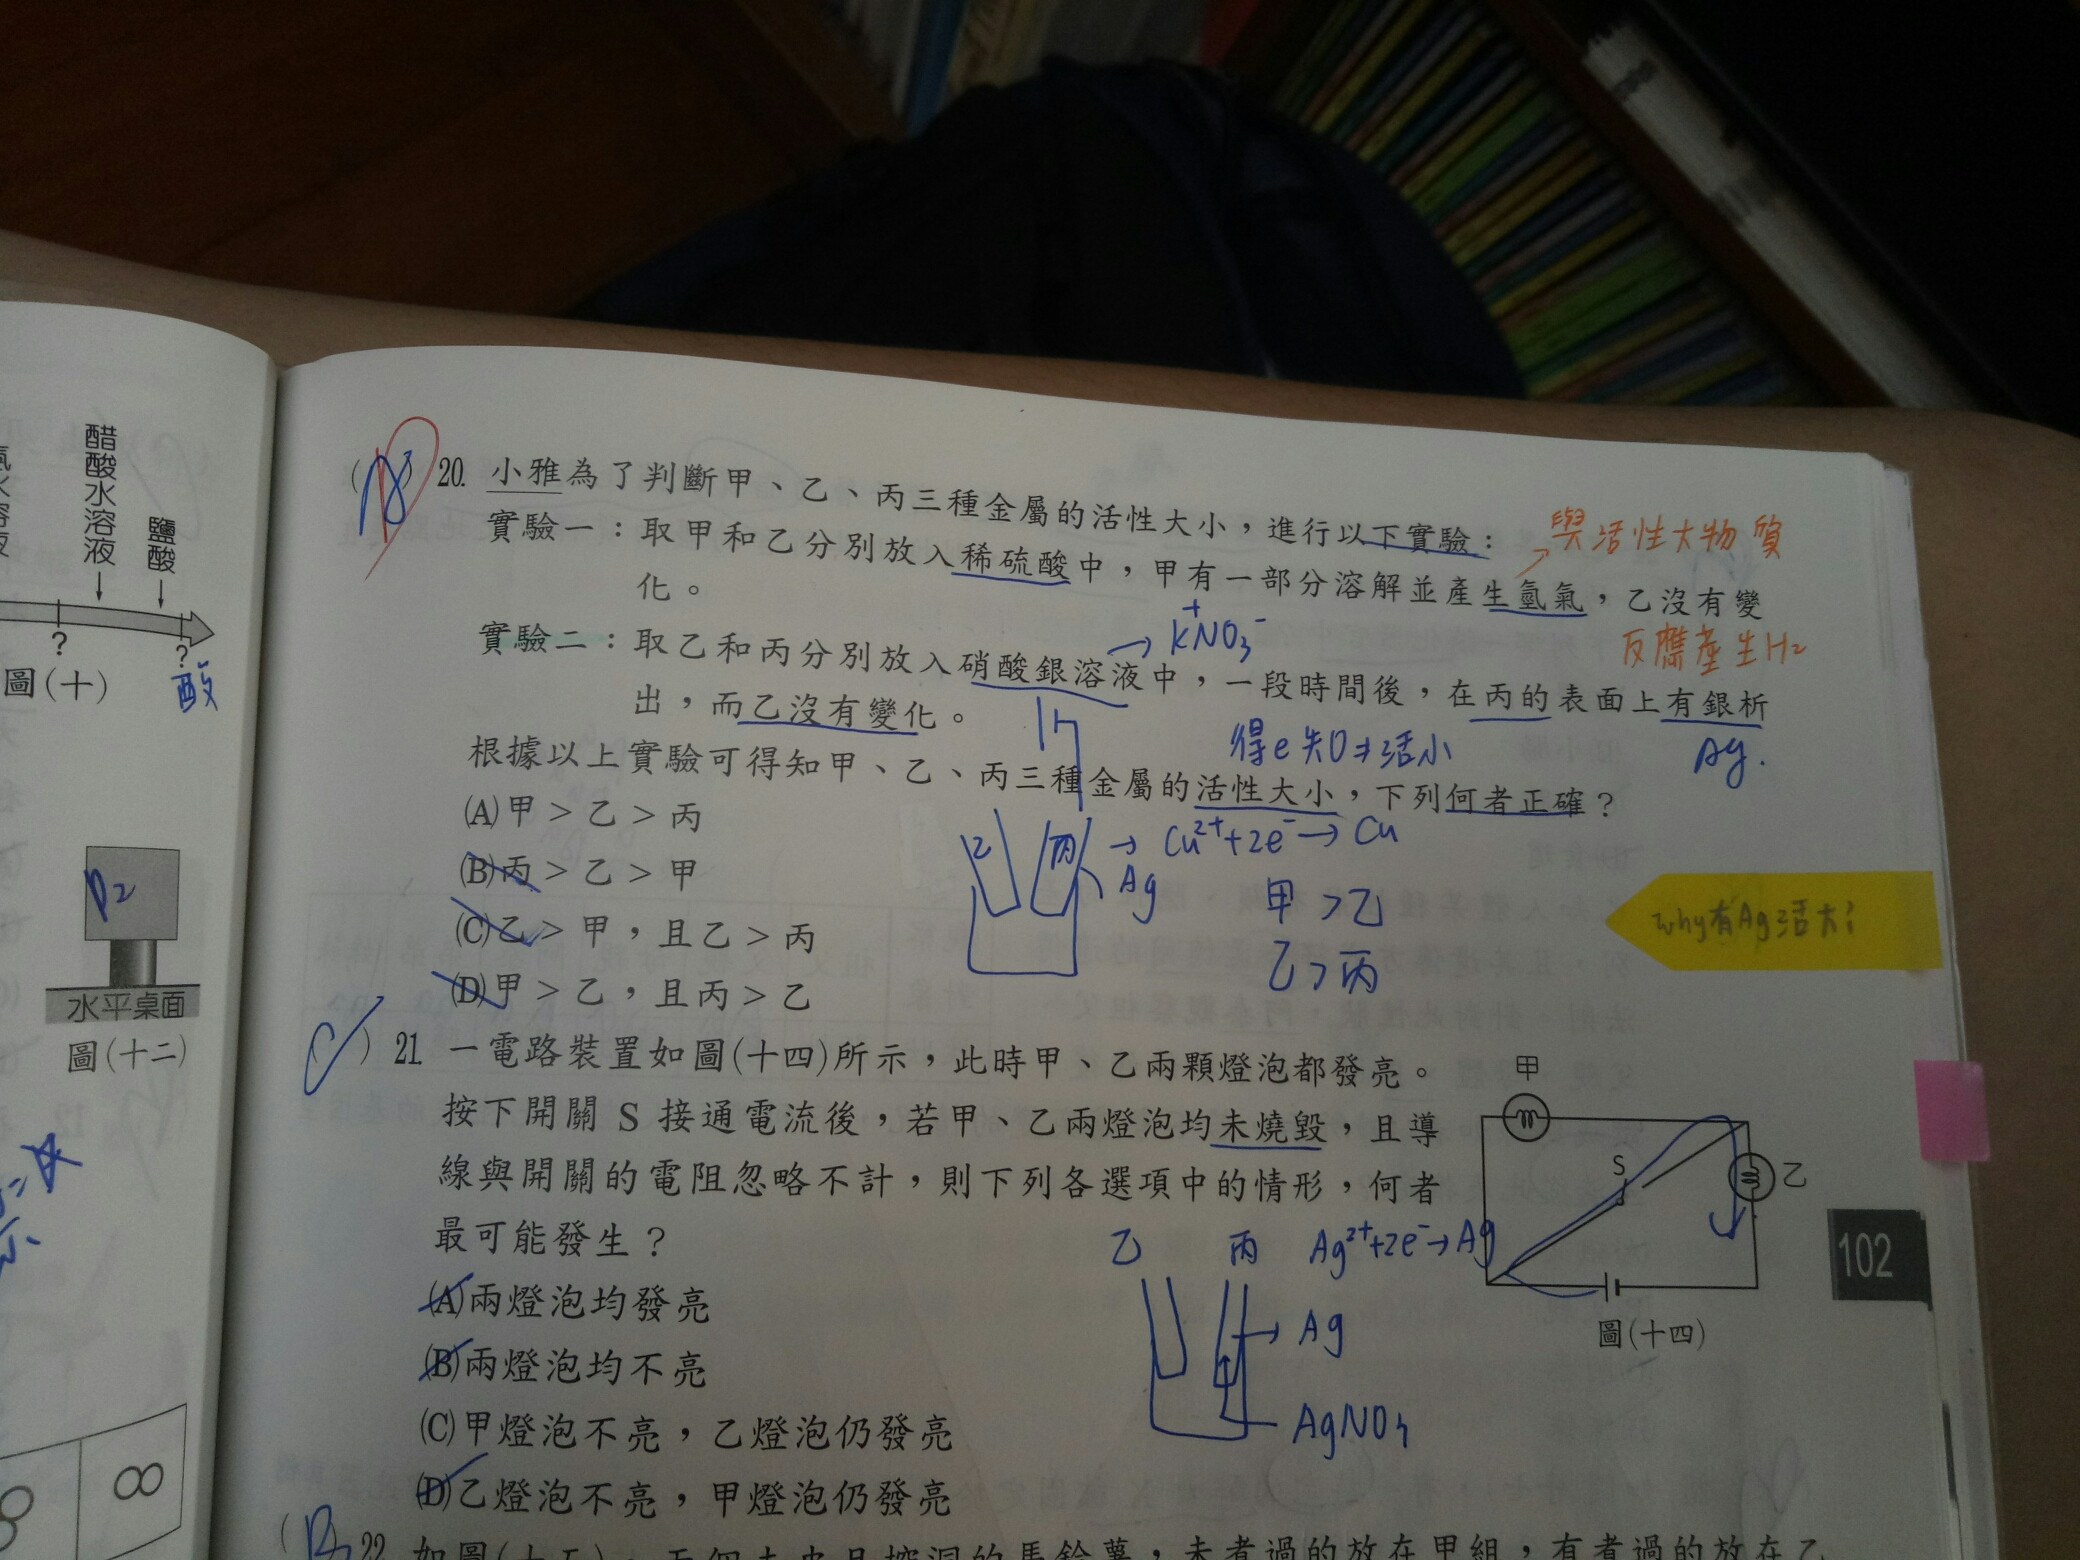 醋酸水溶液
鹽酸
?
?
酸
圖(十)
P2
水平桌面
圖(十二)
8
20. 小雅為了判斷甲、乙、丙三種金屬的活性大小，進行以下實驗：
與活性大物質
實驗一：取甲和乙分別放入稀硫酸中，甲有一部分溶解並產生氫氣，乙沒有變
化。
反應產生H2
KNO3
+
-
實驗二：取乙和丙分別放入硝酸銀溶液中，一段時間後，在丙的表面上有銀析
出，而乙沒有變化。
得e
Ag.
根據以上實驗可得知甲、乙、丙三種金屬的活性大小，下列何者正確？
(A)甲＞乙＞丙
(B)丙＞乙＞甲
(C)乙＞甲，且乙＞丙
(D)甲＞乙，且丙＞乙
乙 丙 → Cu2+ + 2e- → Cu
Ag
甲＞乙
乙＞丙
why有Ag活大?
21. 一電路裝置如圖(十四)所示，此時甲、乙兩顆燈泡都發亮。
按下開關 S 接通電流後，若甲、乙兩燈泡均未燒毀，且導
線與開關的電阻忽略不計，則下列各選項中的情形，何者
最可能發生？
(A)兩燈泡均發亮
(B)兩燈泡均不亮
(C)甲燈泡不亮，乙燈泡仍發亮
(D)乙燈泡不亮，甲燈泡仍發亮
甲
S
乙
圖(十四)
乙 丙 Ag2+ + 2e- → Ag
→ Ag
AgNO3
102
22. 如圖(十五)，